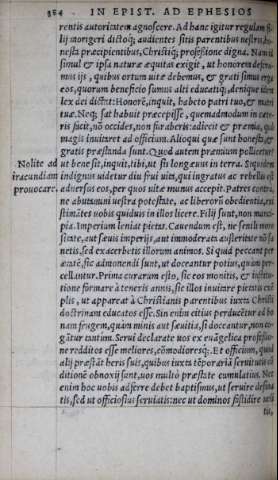 354 IN EPIST. AD EPHESIOS
rentis autoritatem agnoscere. Ad hanc igitur regulam fi-
lij morigeri dictoq́; audientes sitis parentibus uestris, ho-
nesta præcipientibus, Christiq́; professione digna. Nam id
simul & ipsa naturæ æquitas exigit, ut honorem defera-
mus ijs, quibus ortum uitæ debemus, & grati simus erga
eos, quorum beneficio sumus alti educatiq́;, denique idem
lex dei dictat: Honorẽ, inquit, habeto patri tuo, & matri
tuæ. Neq; sat habuit præcepisse, quemadmodum in cæte-
ris fecit, nõ occides, non furaberis: adiecit & præmia, quo
magis inuitaret ad officium. Alioqui quæ sunt honesta, &
gratis præstanda sunt. Quod autem præmium pollicetur?
Nolite ad
iracundiam
prouocare.
ut bene sit, inquit, tibi, ut sis longæuus in terra. Siquidem
indignus uidetur diu frui uita, qui ingratus ac rebellis est
aduersus eos, per quos uitæ munus accepit. Patres contra,
ne abutamini uestra potestate, ac liberorũ obedientia, exi
stimãtes uobis quiduis in illos licere. Filij sunt, non manci-
pia. Imperium leniat pietas. Cauendum est, ne senili moro
sitate, aut sæuis imperijs, aut immoderata austeritate nõ sa
netis, sed exacerbetis illorum animos. Si quid peccant per
ætatẽ, sic admonendi sunt, ut doceantur potius, quàm per-
cellantur. Prima curarum esto, sic eos monitis, & institu-
tione formare à teneris annis, sic illos inuitare pietatis exẽ
plis, ut appareat à Christianis parentibus iuxta Christi
doctrinam educatos esse. Sin enim citius perducẽtur ad bo
nam frugem, quàm minis aut sæuitia, si doceantur, non co-
gãtur tantum. Serui declarate uos ex euãgelica professio-
ne redditos esse meliores, cõmodioresq́;. Et officium, quod
alij præstãt heris suis, quibus iuxta tẽporariã seruitutis cõ
ditionẽ obnoxij sunt, uos multò præstate cumulatius. Nec
enim hoc uobis adferre debet baptismus, ut seruire desina
tis, sed ut officiosius seruiatis: nec ut dominos fastidire uelit
tis,